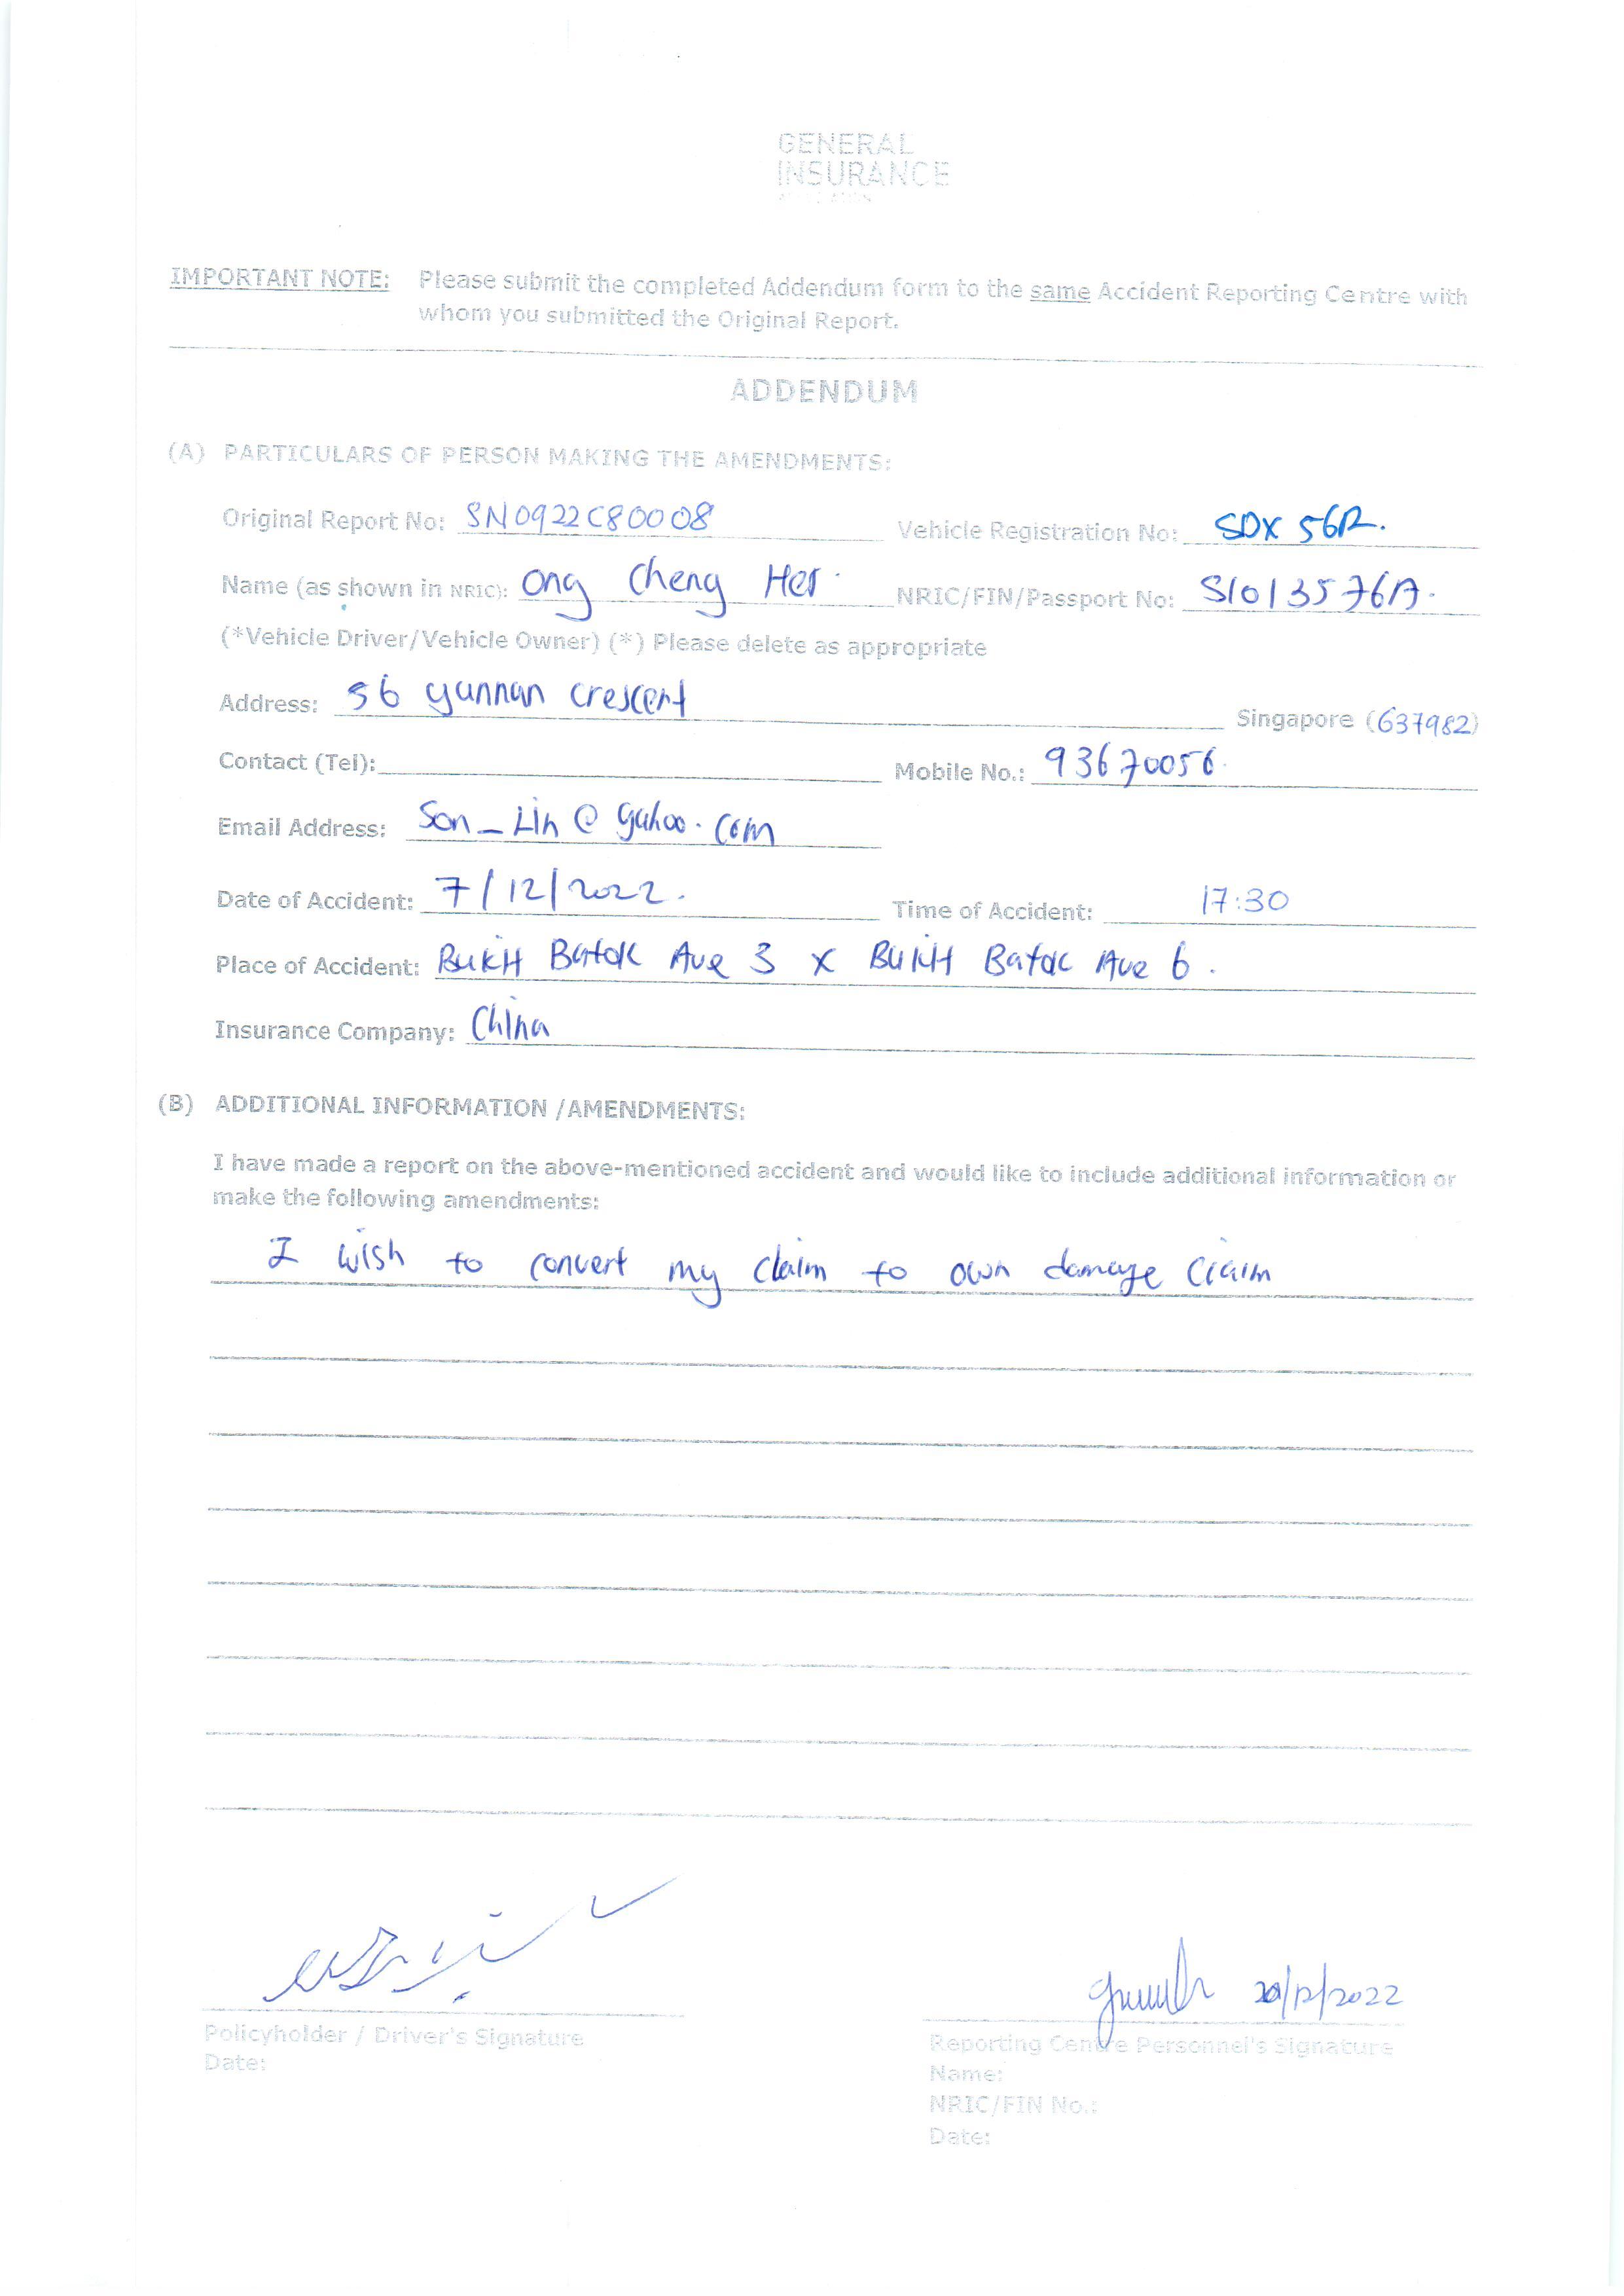 GENERAL
INSURANCE
IMPORTANT NOTE: Please submit the completed Addendum form to the same Accident Reporting Centre with
whom you submitted the Original Report.
ADDENDUM
(A) PARTICULARS OF PERSON MAKING THE AMENDMENTS:
Original Report No: SN0922C80008 Vehicle Registration No: SDX 56R.
Name (as shown in NRIC): Ong Cheng Her NRIC/FIN/Passport No: S1013576A.
(*Vehicle Driver/Vehicle Owner) (*) Please delete as appropriate
Address: 56 yunnan crescent Singapore (637982)
Contact (Tel): Mobile No.: 93670056
Email Address: Son_Lin@yahoo.com
Date of Accident: 7/12/2022. Time of Accident: 17:30
Place of Accident: Bukit Batok Ave 3 x Bukit Batok Ave 6.
Insurance Company: China
(B) ADDITIONAL INFORMATION /AMENDMENTS:
I have made a report on the above-mentioned accident and would like to include additional information or
make the following amendments:
I wish to convert my claim to own damage claim
20/12/2022
Policyholder / Driver's Signature
Date:
Reporting Centre Personnel's Signature
Name:
NRIC/FIN No.:
Date: